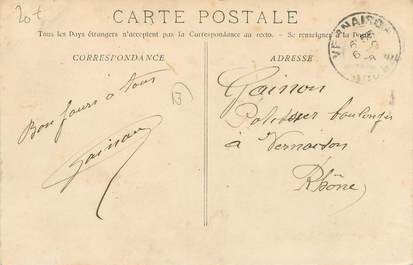 20+
CARTE POSTALE
Tous les Pays étrangers n'acceptent pas la Correspondance au recto. — Se renseigner à la Poste
CORRESPONDANCE
ADRESSE
VERNAISON
RHONE
13
Bonjours à tous
Gainon
Gainon
boulanger
à Vernaison
Rhône